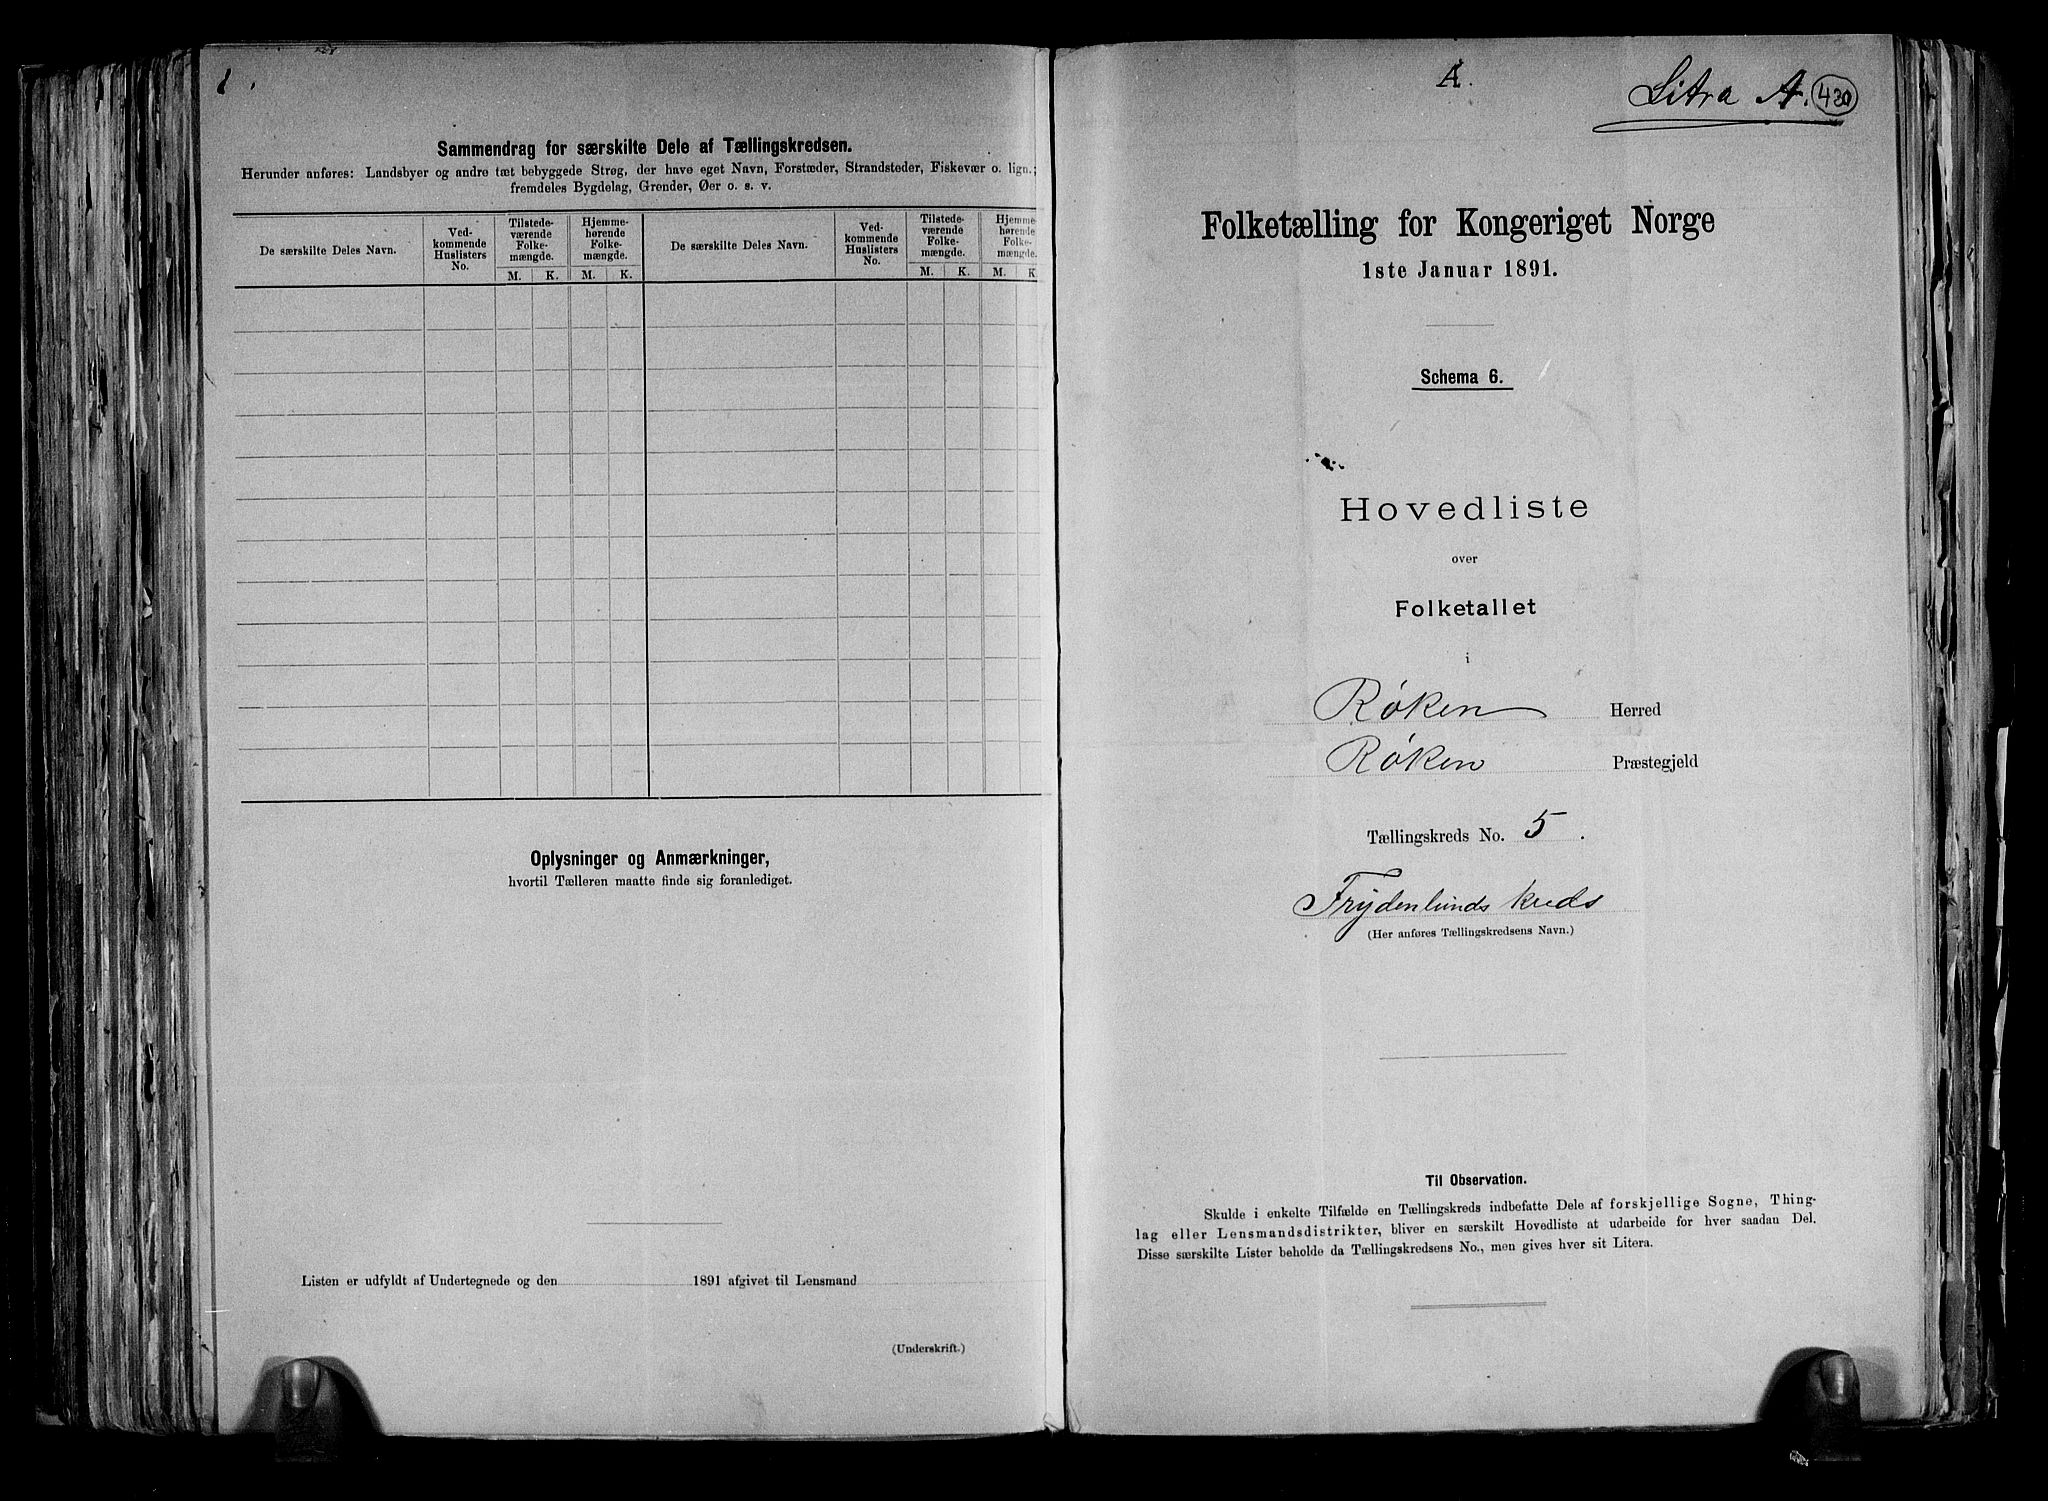 Sammendrag for særskilte Dele af Tællingskredsen.
Herunder anføres: Landsbyer og andre tæt bebyggede Strøg, der have eget Navn, Forstæder, Strandsteder, Fiskevær o. lign.;
fremdeles Bygdelag, Grender, Øer o. s. v.
De særskilte Deles Navn.
Ved-
kommende
Huslisters
No.
Tilstede-
værende
Folke-
mængde.
M. K.
Hjemme-
hørende
Folke-
mængde.
M. K.
De særskilte Deles Navn.
Ved-
kommende
Huslisters
No.
Tilstede-
værende
Folke-
mængde.
M. K.
Hjemme-
hørende
Folke-
mængde.
M. K
Oplysninger og Anmærkninger,
hvortil Tælleren maatte finde sig foranlediget.
Listen er udfyldt af Undertegnede og den 1891 afgivet til Lensmand
(Underskrift.)
A.
Litra A. 430
Folketælling for Kongeriget Norge
1ste Januar 1891.
Schema 6.
Hovedliste
over
Folketallet
i
Røken Herred
Røken Præstegjeld
Tællingskreds No. 5.
Frydenlunds kreds
(Her anføres Tællingskredsens Navn.)
Til Observation.
Skulde i enkelte Tilfælde en Tællingskreds indbefatte Dele af forskjellige Sogne, Thing-
lag eller Lensmandsdistrikter, bliver en særskilt Hovedliste at udarbeide for hver saadan Del.
Disse særskilte Lister beholde da Tællingskredsens No., men gives hver sit Litera.